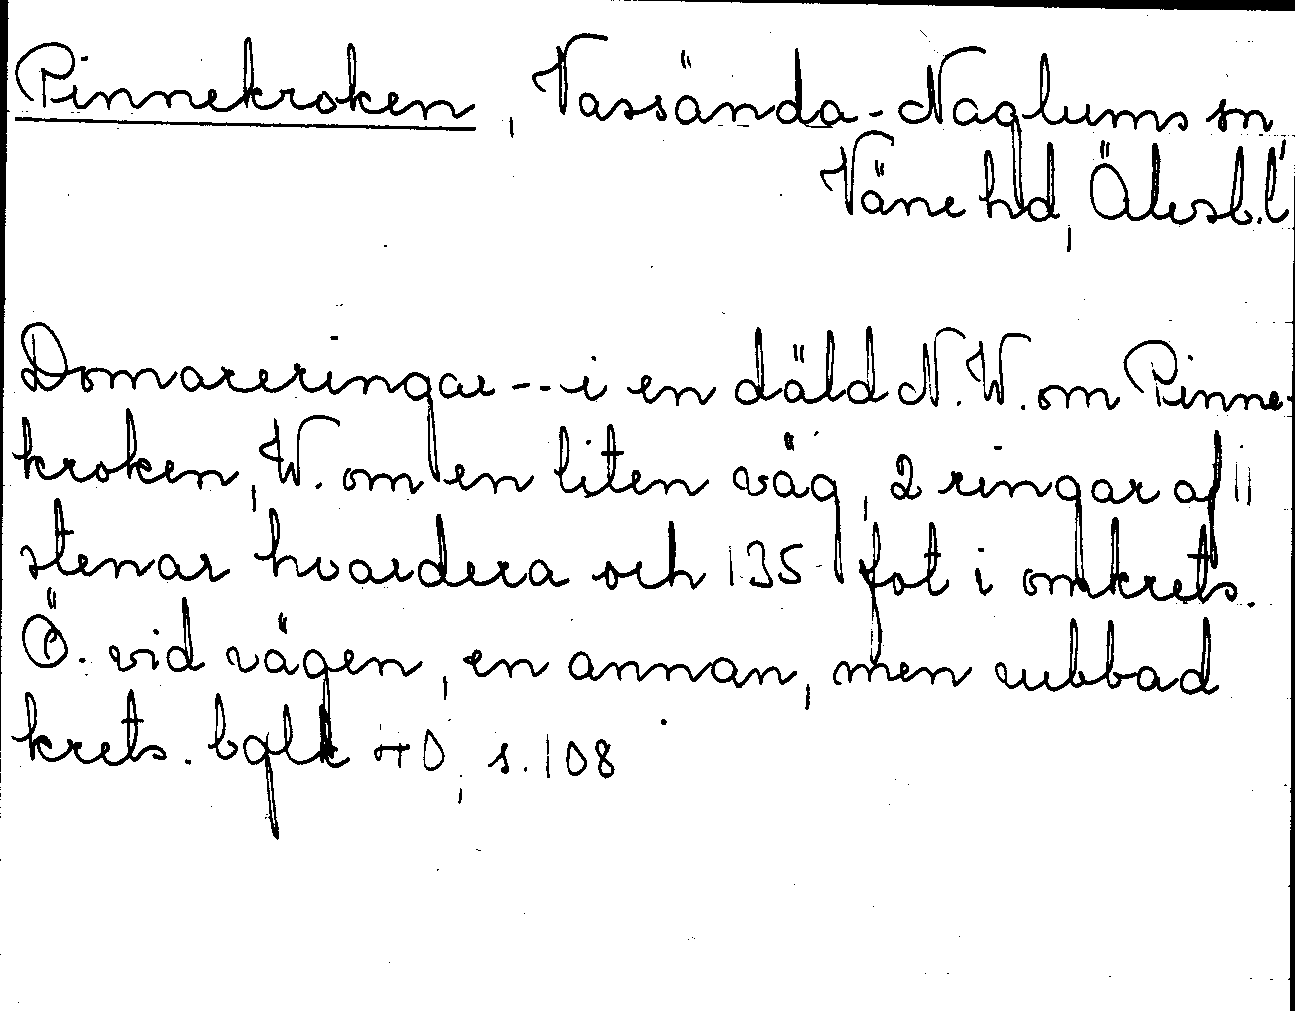 Pinnekroken, Vassända-Naglums sn
Väne hd, Älvsb.l
Domareringar -- i en däld N.W. om Pinne-
kroken, W. om en liten väg, 2 ringar af 11
stenar hvardera och 135 fot i omkrets.
Ö. vid vägen, en annan, men rubbad
krets. s. 108